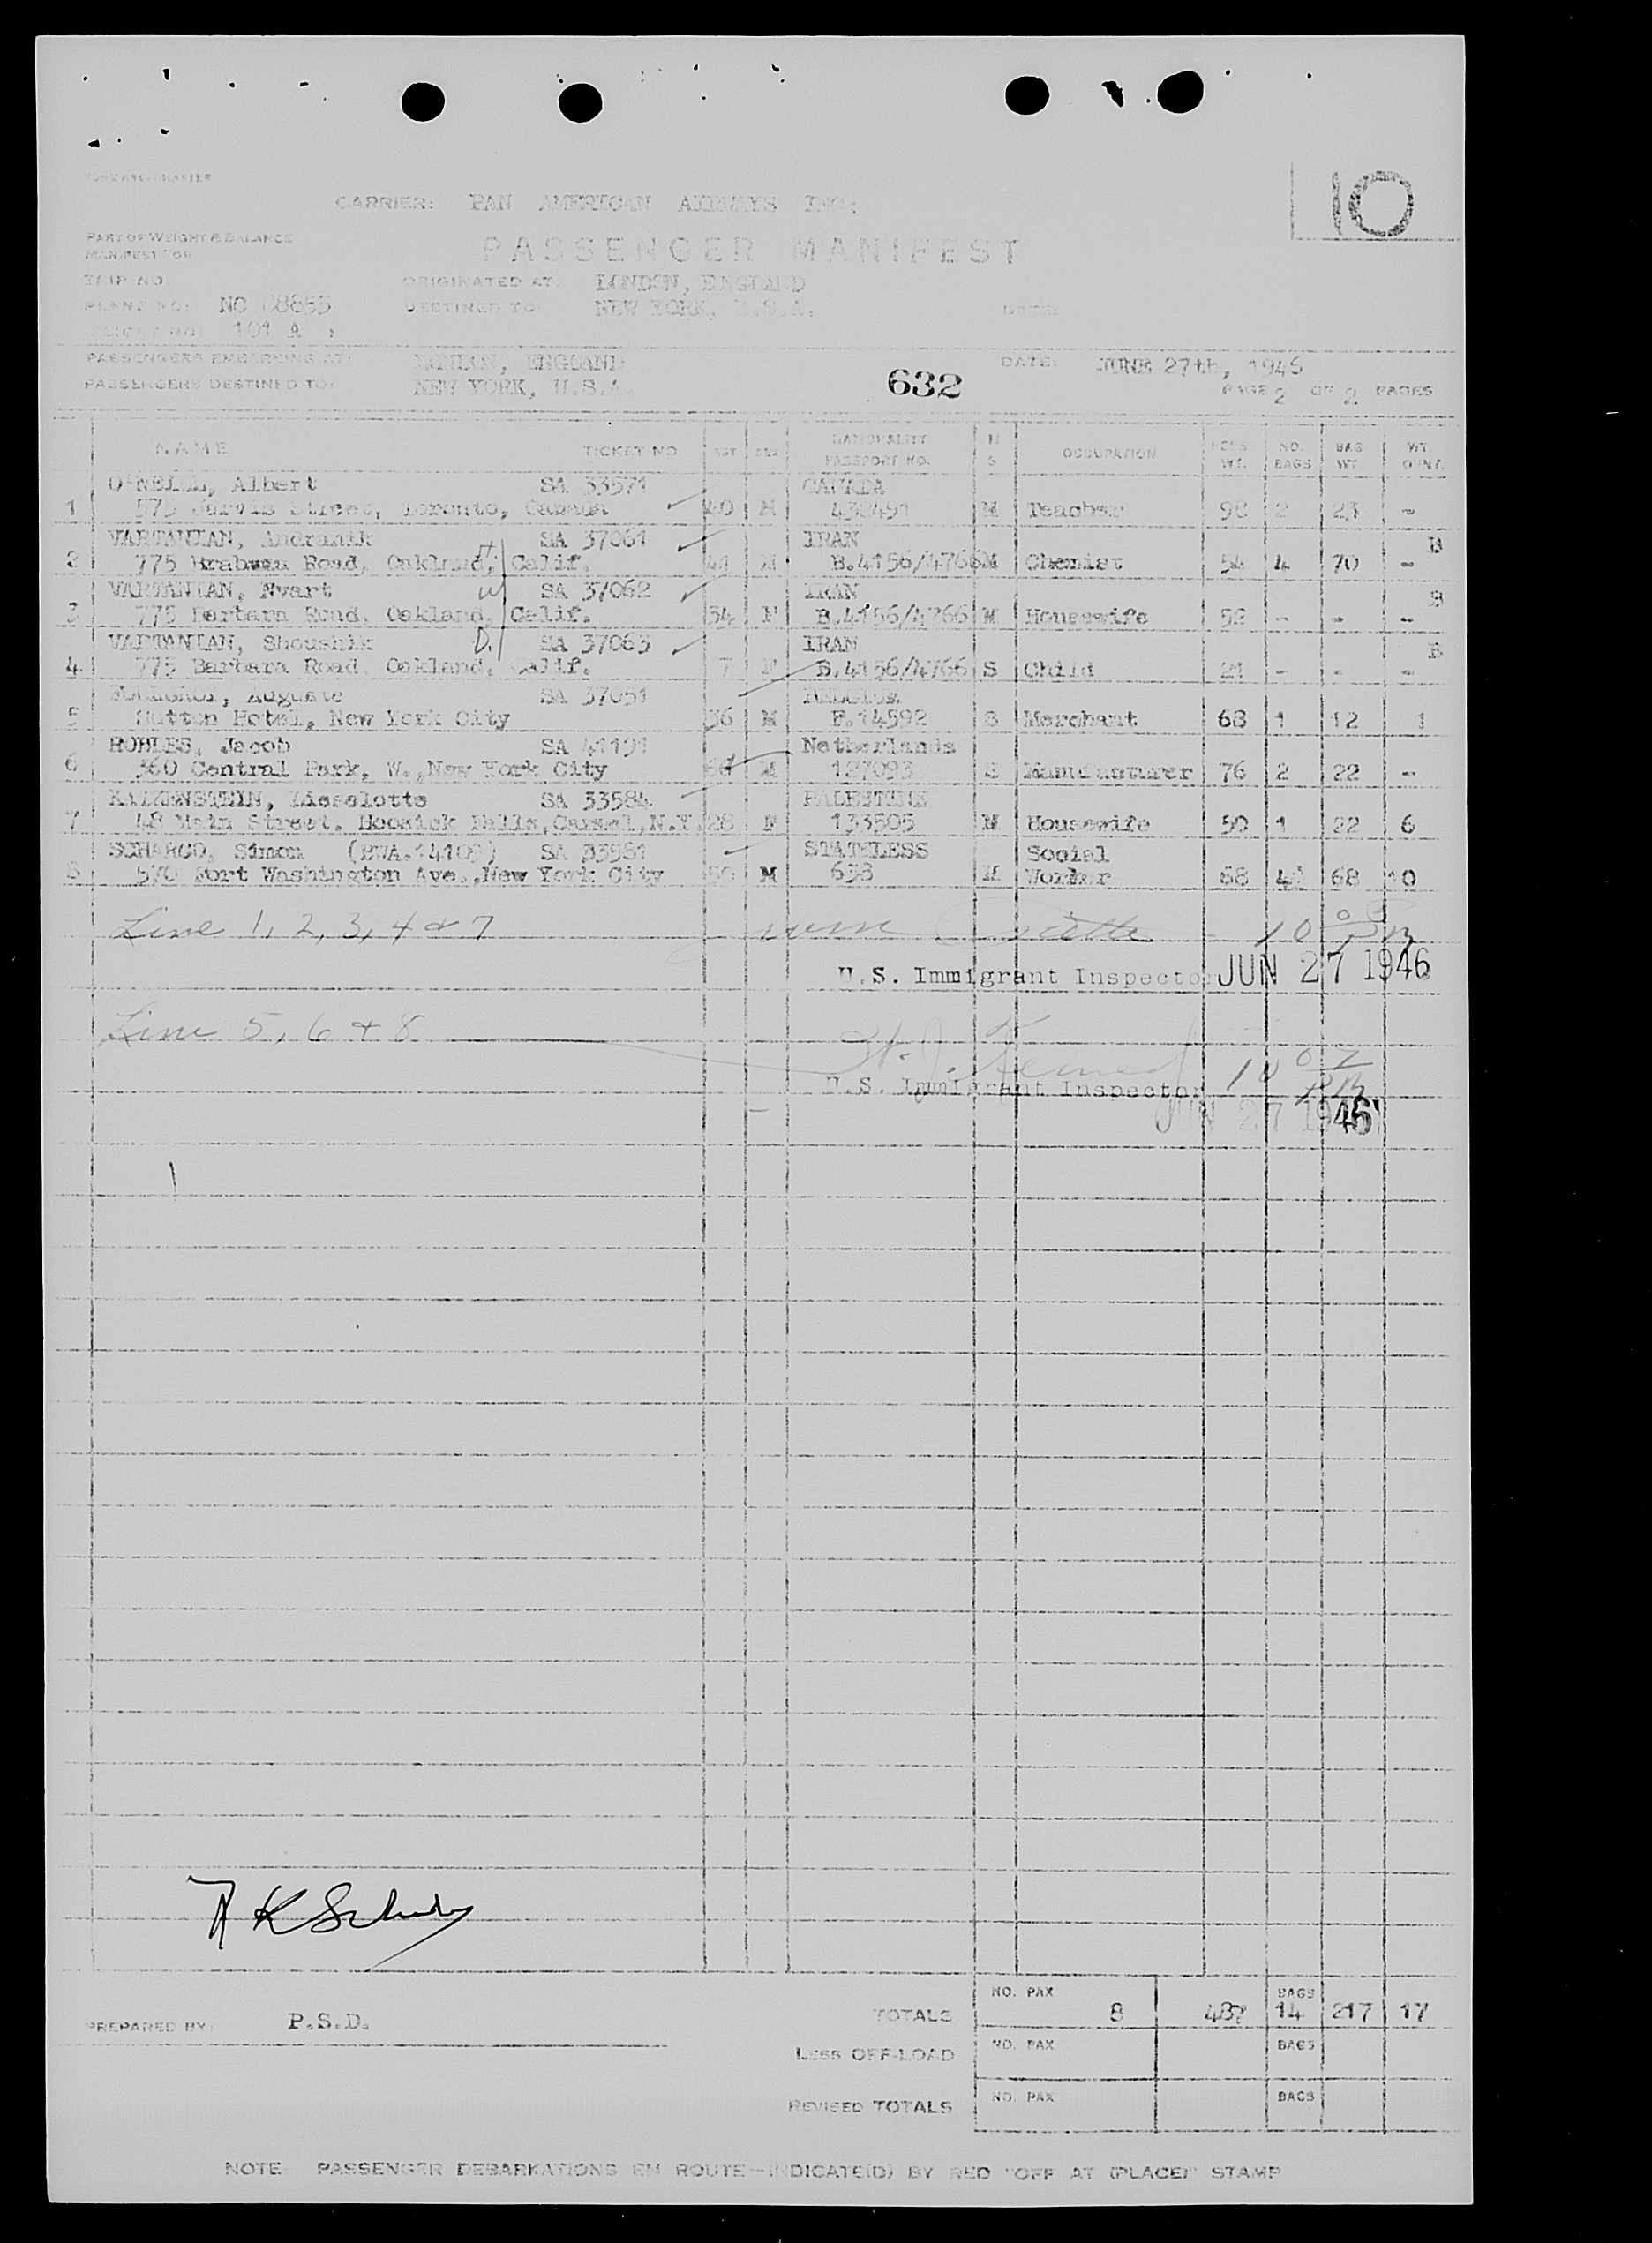 10
CARRIER: PAN AMERICAN AIRWAYS INC.
PART OF WEIGHT & BALANCE
MANIFEST FOR
PASSENGER MANIFEST
TRIP NO.
ORIGINATED AT: LONDON, ENGLAND
PLANE NO: NC 88855
DESTINED TO: NEW YORK, U.S.A.
DATE:
FLIGHT NO: 101 A
PASSENGERS EMBARKING AT: LONDON, ENGLAND
DATE: JUNE 27th, 1946
PASSENGERS DESTINED TO: NEW YORK, U.S.A.
632
PAGE 2 OF 2 PAGES
NAME TICKET NO AGE SEX NATIONALITY PASSPORT NO. M S OCCUPATION PERS WT. NO. BAGS BAG WT WT.
O'NEILL, Albert SA 33571 CANADA
1 575 Jarvis Street, Toronto, Canada 40 M 432491 M Teacher 98 2 23 -
VARTANIAN, Andranik H SA 37061 IRAN B
2 775 Road, Oakland, Calif. 41 M B.4156/4766 M Chemist 54 4 70 -
VARTANIAN, Nvart W SA 37062 IRAN B
3 775 Barbara Road, Oakland, Calif. 34 F B.4156/4766 M Housewife 52 - - -
VARTANIAN, Shoushik D. SA 37063 IRAN B
4 775 Barbara Road, Oakland, Calif. 7 F B.4156/4766 S Child 21 - - -
Auguste SA 37051 BELGIUM
5 Sutton Hotel, New York City 36 M F.14592 S Merchant 68 1 12 1
ROBLES, Jacob SA 41191 Netherlands
6 360 Central Park, W., New York City M 127093 S Manufacturer 76 2 22 -
KATZENSTEIN, Lieselotte SA 33584 PALESTINE
7 48 Main Street, Hoosick Falls, Carmel, N.Y. 28 F 133505 M Housewife 50 1 22 6
SCHARGO, Simon SA 33581 STATELESS Social
8 570 Fort Washington Ave., New York City 50 M 638 M Worker 68 4 68 10
Line 1, 2, 3, 4 & 7
U.S. Immigrant Inspector JUN 27 1946
Line 5, 6 & 8
10 02 PM
U.S. Immigrant Inspector
JUN 27 1946
NO. PAX BAGS
PREPARED BY: P.S.D.
TOTALS 8 487 14 217 17
LESS OFF-LOAD NO. PAX BAGS
REVISED TOTALS NO. PAX BAGS
NOTE PASSENGER DEBARKATIONS EN ROUTE - INDICATE(D) BY RED "OFF AT (PLACE)" STAMP